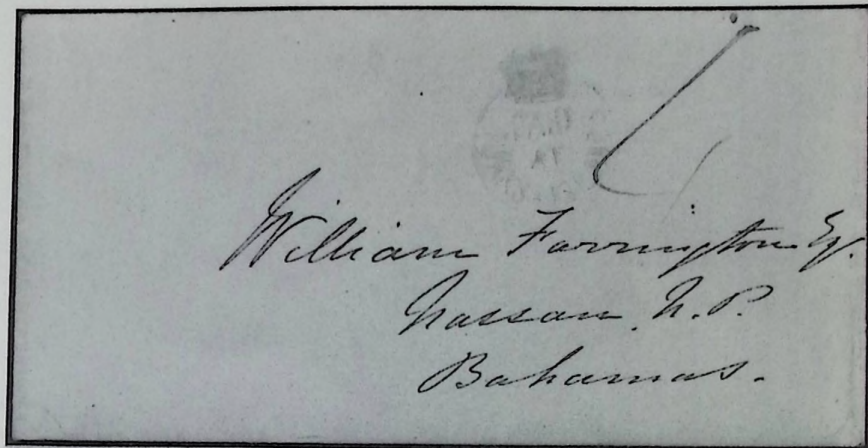 William Farrington Esq.
Nassau, N.P.
Bahamas.